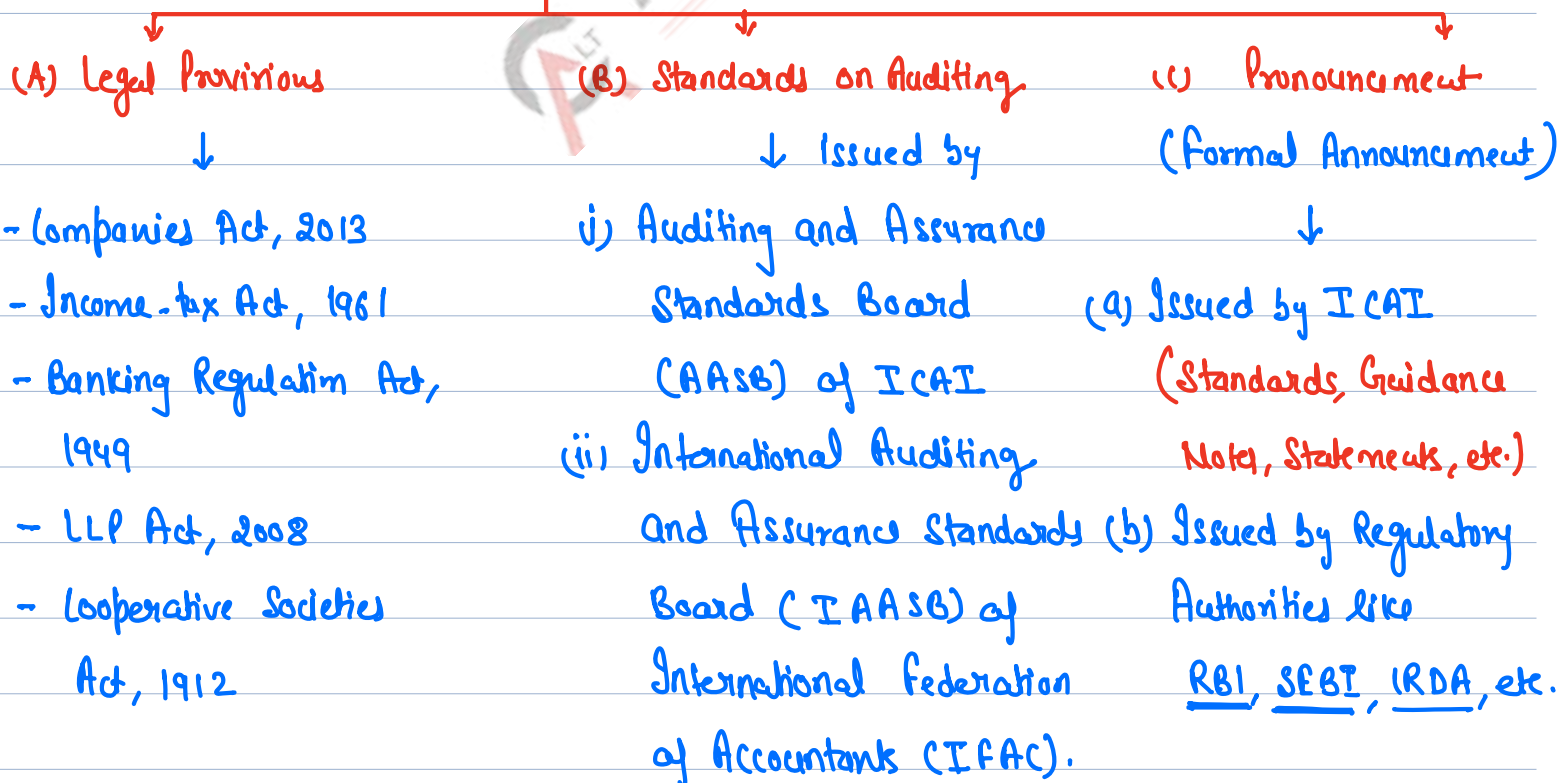 (A) Legal Provisions
↓
- Companies Act, 2013
- Income-tax Act, 1961
- Banking Regulation Act,
1949
- LLP Act, 2008
- Cooperative Societies
Act, 1912
LT
(B) Standards on Auditing
↓ Issued by
i) Auditing and Assurance
Standards Board
(AASB) of ICAI
(ii) International Auditing
and Assurance Standards
Board (IAASB) of
International Federation
of Accountants (IFAC).
(C) Pronouncement
(Formal Announcement)
↓
(a) Issued by ICAI
(Standards, Guidance
Notes, Statements, etc.)
(b) Issued by Regulatory
Authorities like
RBI, SEBI, IRDA, etc.